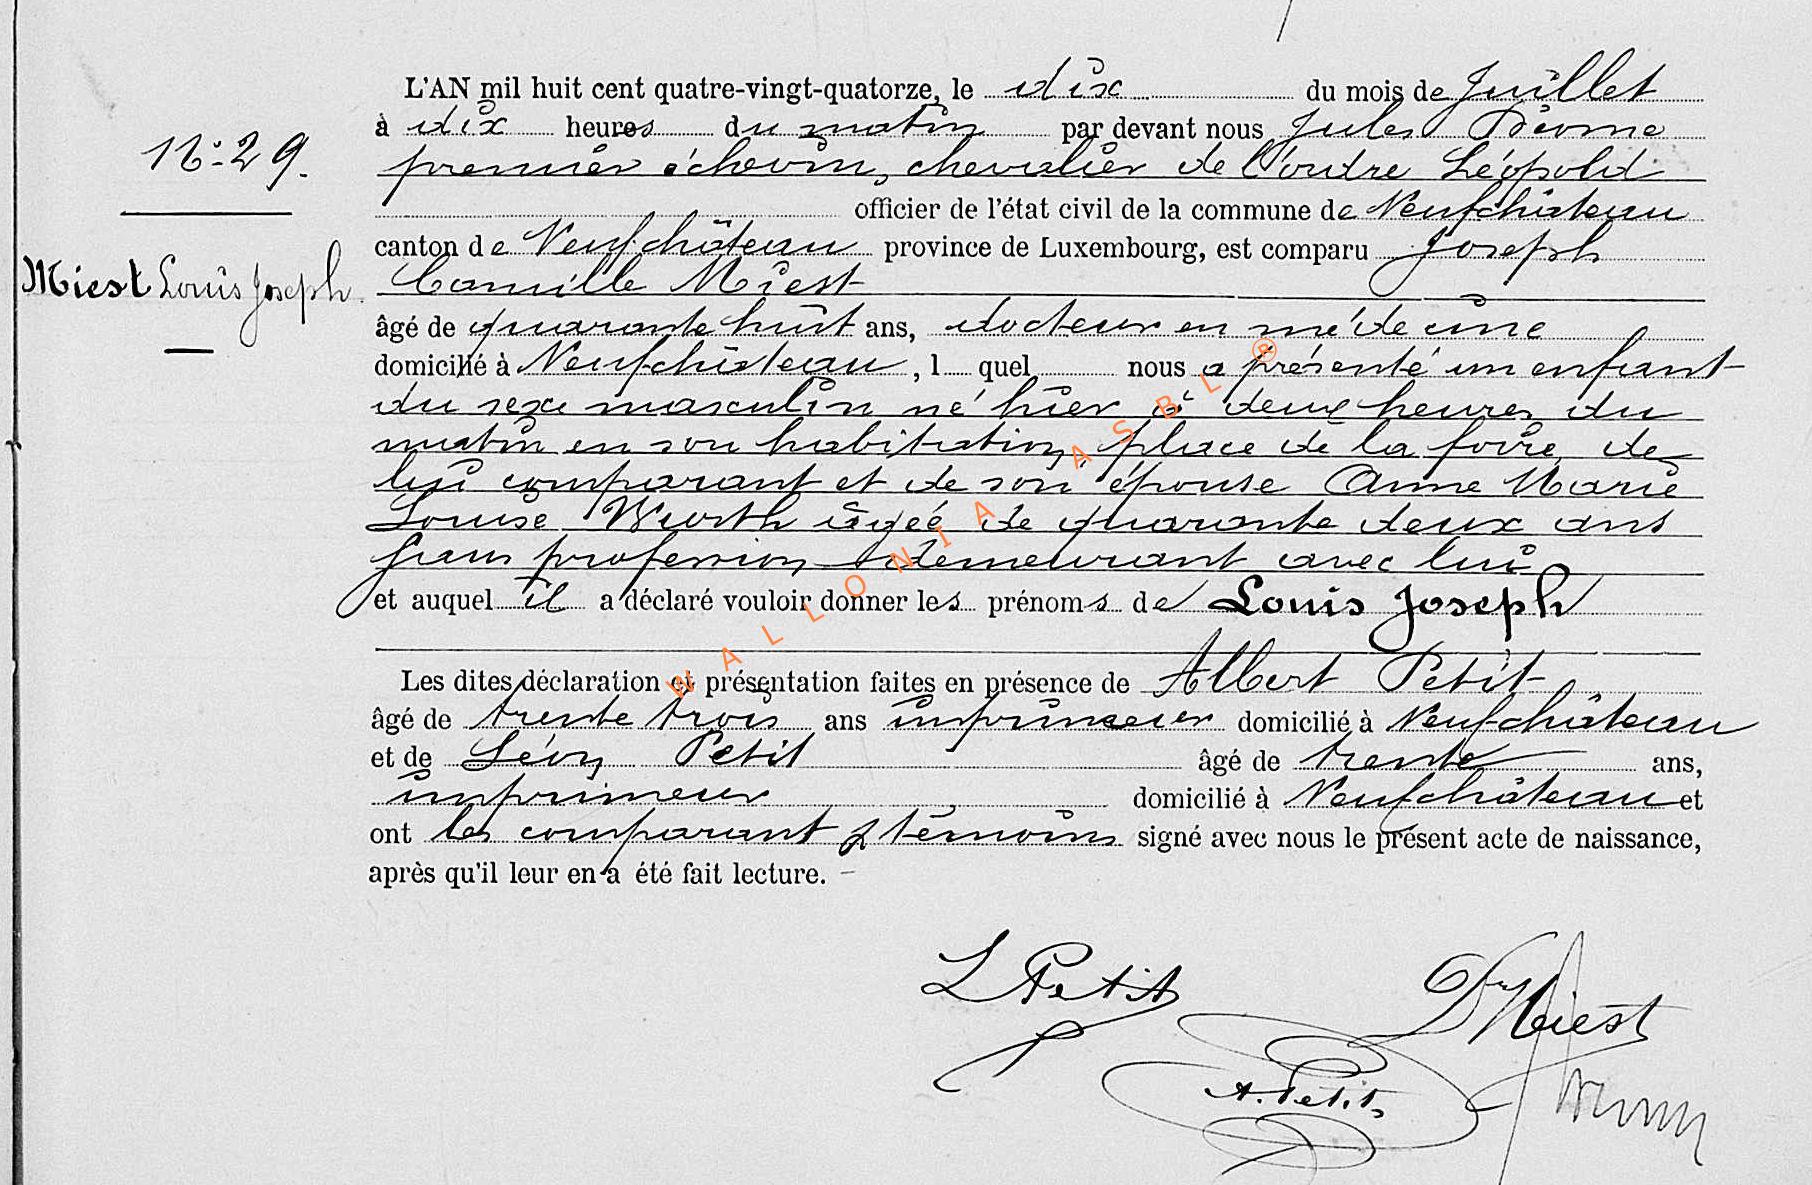 L'AN mil huit cent quatre-vingt-quatorze, le dix du mois de Juillet
à dix heures du matin par devant nous Jules
N° 29.
premier échevin, chevalier de l'ordre Léopold
officier de l'état civil de la commune de Neufchâteau
canton de Neufchâteau province de Luxembourg, est comparu Joseph
Miest Louis Joseph
Camille Miest
âgé de quarante huit ans, docteur en médecine
domicilié à Neufchâteau, l quel nous a présenté un enfant
du sexe masculin né hier à deux heures du
matin en son habitation, place de la foire, de
lui comparant et de son épouse Anne Marie
Louise Wurth âgée de quarante deux ans
sans profession demeurant avec lui
et auquel il a déclaré vouloir donner les prénoms de Louis Joseph
Les dites déclaration et présentation faites en présence de Albert Petit
âgé de trente trois ans imprimeur domicilié à Neufchâteau
et de Léon Petit âgé de trente ans,
imprimeur domicilié à Neufchâteau et
ont les comparant & témoins signé avec nous le présent acte de naissance,
après qu'il leur en a été fait lecture. -
L Petit
Dr Miest
A. Petit
WALLONIA ASBL ®